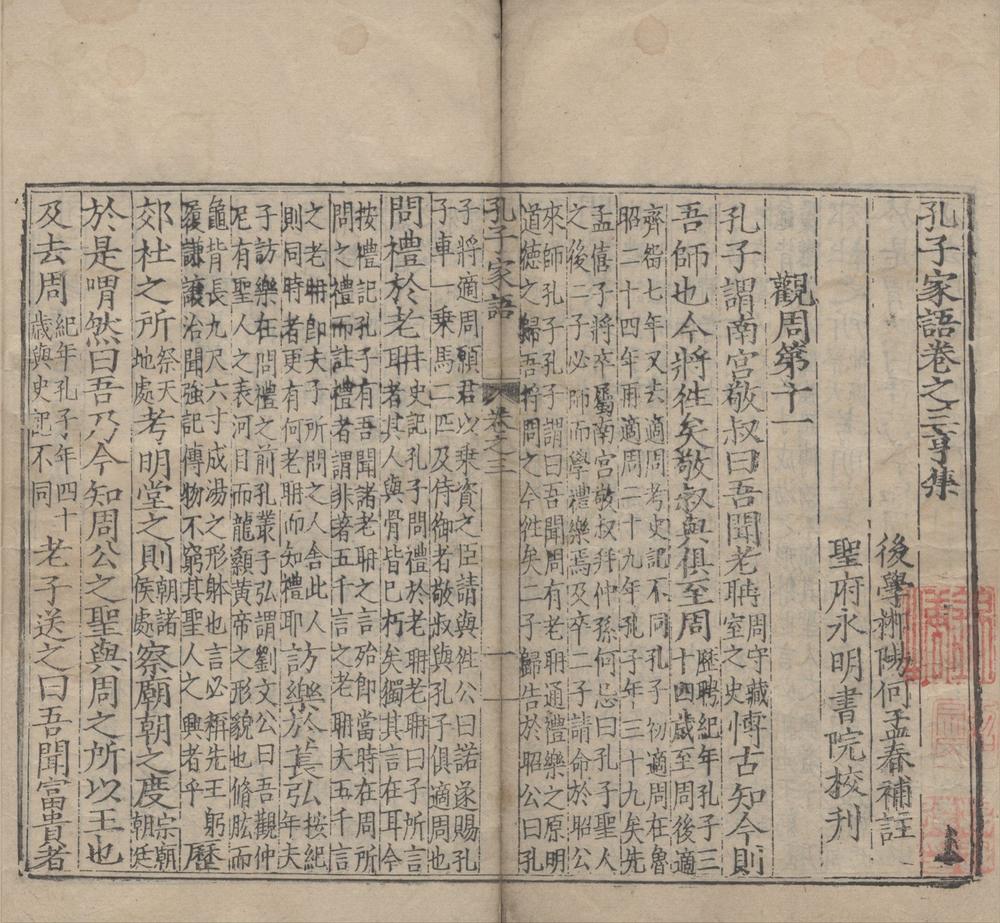 孔子家語卷之三亨集
後學郴陽何孟春補註
聖府永明書院校刋
觀周第十一
孔子謂南宮敬叔曰吾聞老聃周守藏室之史愽古知今則
吾師也今將徃矣敬叔與俱至周歷聘紀年孔子三十四歲至周後適
齊晉七年又去適周考史記不同孔子初適周在魯
昭二十四年再適周二十九年孔子年三十九矣先
孟僖子將卒屬南宮敬叔拜仲孫何忌曰孔子聖人
之後二子必師而學禮樂焉及卒二子請命於昭公
來師孔子孔子謂曰吾聞周有老聃通禮樂之原明
道德之歸吾將問之今徃矣二子歸告於昭公曰孔
孔子家語 卷之三 一
子將適周願君以乗資之臣請與徃公曰諾遂賜孔
子車一乗馬二匹及侍御者敬叔與孔子俱適周也
問禮於老聃史記孔子問禮於老聃老聃曰子所言者其人與骨皆已朽矣獨其言在耳今
按禮記孔子有吾聞諸老聃之言殆即當時在周所
問之禮而註禮者謂非著五千言之老聃夫五千言
之老聃即夫子所問之人舍此人
則同時者更有何老聃而知禮耶訪樂於萇弘按紀年夫
子訪樂在問禮之前孔叢子弘謂劉文公曰吾觀仲
尼有聖人之表河目而龍顙黃帝之形貌也脩肱而
龜背長九尺六寸成湯之形躰也言必稱先王躬
履謙讓洽聞強記博物不窮其聖人之興者乎歷
郊社之所祭天地處考明堂之則朝諸侯處察廟朝之度宗朝朝廷
於是喟然曰吾乃今知周公之聖與周之所以王也
及去周紀年孔子年四十歲與史記不同老子送之曰吾聞富貴者